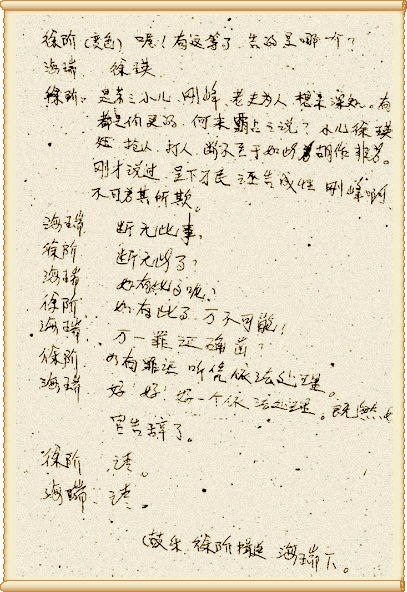 徐阶（变色）呢！有这等事 告的是哪一个？
海瑞 徐瑛
徐阶 是老三小儿 刚峰 老夫为人 想来深知。有
都是你见的 何来霸占之说？小儿徐瑛
抢人 打人 断不至于如此胡作非为。
刚才说过 是下刁民 诬告成性 刚峰啊
不可为其所欺。
海瑞 断无此事，
徐阶 断无此事？
海瑞 如有此事呢？
徐阶 如有此事，万不可能！
海瑞 万一罪证确凿？
徐阶 如有罪证 听凭依法处理。
海瑞 好 好！好一个依法处理。既然
官告辞了。
徐阶 请。
海瑞 请。
（鼓乐 徐阶 海瑞下。